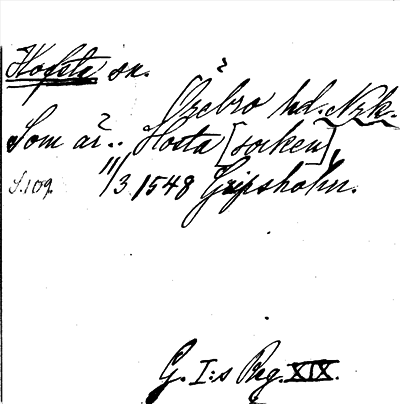 Hofsta sn.
Örebro hd. Nrk.
Som är .. Hosta [socken],
S. 109. 11/3 1548 Gripsholm.
G. I:s Reg. XIX.